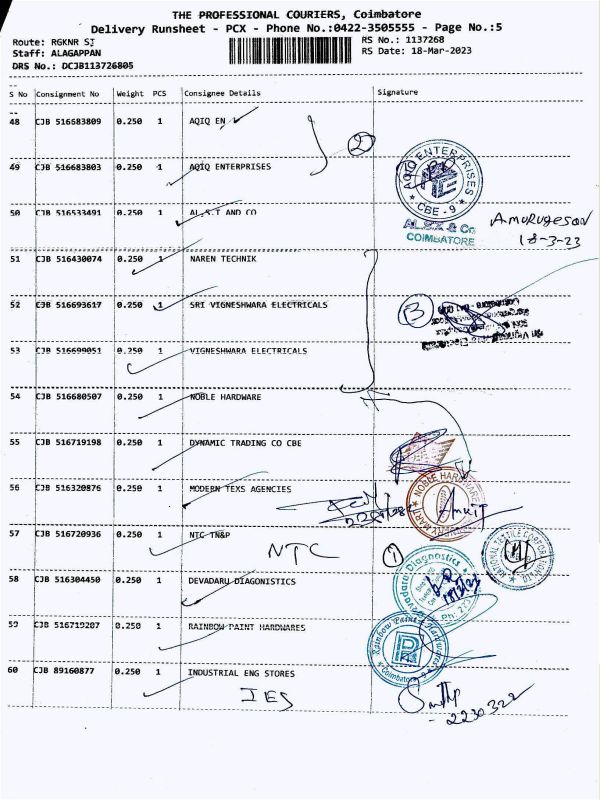 THE PROFESSIONAL COURIERS, Coimbatore
Delivery Runsheet - PCX - Phone No.:0422-3505555 - Page No.:5
Route: RGKNR SI
RS No.: 1137268
Staff: ALAGAPPAN
RS Date: 18-Mar-2023
DRS No.: DCJB113726805
S No Consignment No Weight PCS Consignee Details Signature
48 CJB 516683809 0.250 1 AQIQ EN
2
49 CJB 516683803 0.250 1 AQIQ ENTERPRISES
AQIQ ENTERPRISES
CBE - 9
50 CJB 516533491 0.250 1 AL.S.T AND CO
& Co
COIMBATORE
A.MURUGESAN
18-3-23
51 CJB 516430074 0.250 1 NAREN TECHNIK
52 CJB 516693617 0.250 1 SRI VIGNESHWARA ELECTRICALS
3
53 CJB 516699051 0.250 1 VIGNESHWARA ELECTRICALS
54 CJB 516680507 0.250 1 NOBLE HARDWARE
55 CJB 516719198 0.250 1 DYNAMIC TRADING CO CBE
56 CJB 516320876 0.250 1 MODERN TEXS AGENCIES
NOBLE HARDWARE MART
57 CJB 516720936 0.250 1 NTC TN&P
NTC
1
NATIONAL TEXTILE CORPORATION
58 CJB 516304450 0.250 1 DEVADARU DIAGONISTICS
Diagnostics
59 CJB 516719207 0.250 1 RAINBOW PAINT HARDWARES
Rainbow Paint & Hardwares
Coimbatore
60 CJB 89160877 0.250 1 INDUSTRIAL ENG STORES
IES